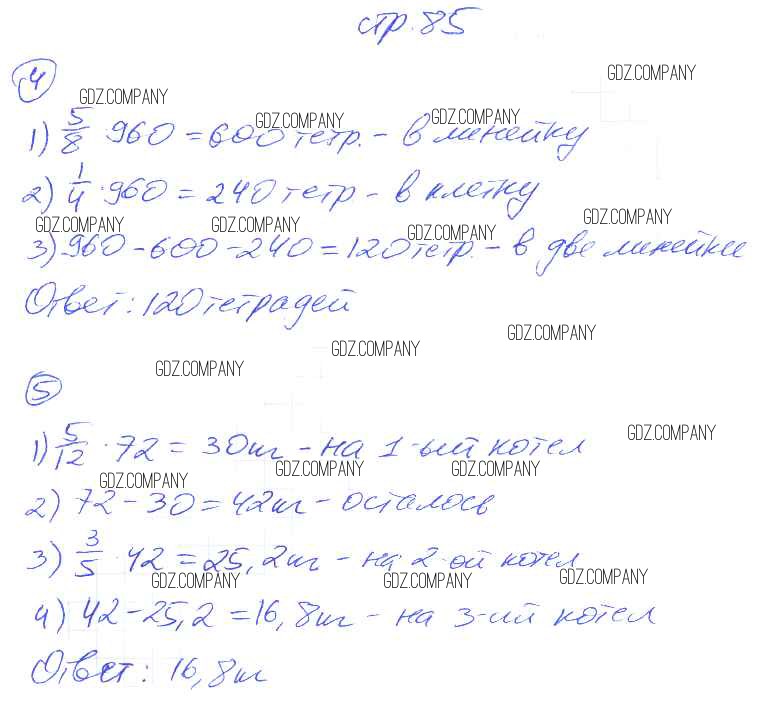 стр. 85
4
GDZ.COMPANY
GDZ.COMPANY
GDZ.COMPANY GDZ.COMPANY
1) 5/8 · 960 = 600 тетр. – в линейку
2) 1/4 · 960 = 240 тетр – в клетку
GDZ.COMPANY GDZ.COMPANY GDZ.COMPANY GDZ.COMPANY
3) 960 – 600 – 240 = 120 тетр. – в две линейки
Ответ: 120 тетрадей
GDZ.COMPANY GDZ.COMPANY GDZ.COMPANY
5
GDZ.COMPANY
1) 5/12 · 72 = 30 кг – на 1-ый котел
GDZ.COMPANY GDZ.COMPANY GDZ.COMPANY
2) 72 – 30 = 42 кг – осталось
3) 3/5 · 42 = 25,2 кг – на 2-ой котел
GDZ.COMPANY GDZ.COMPANY GDZ.COMPANY
4) 42 – 25,2 = 16,8 кг – на 3-ий котел
Ответ: 16,8 кг